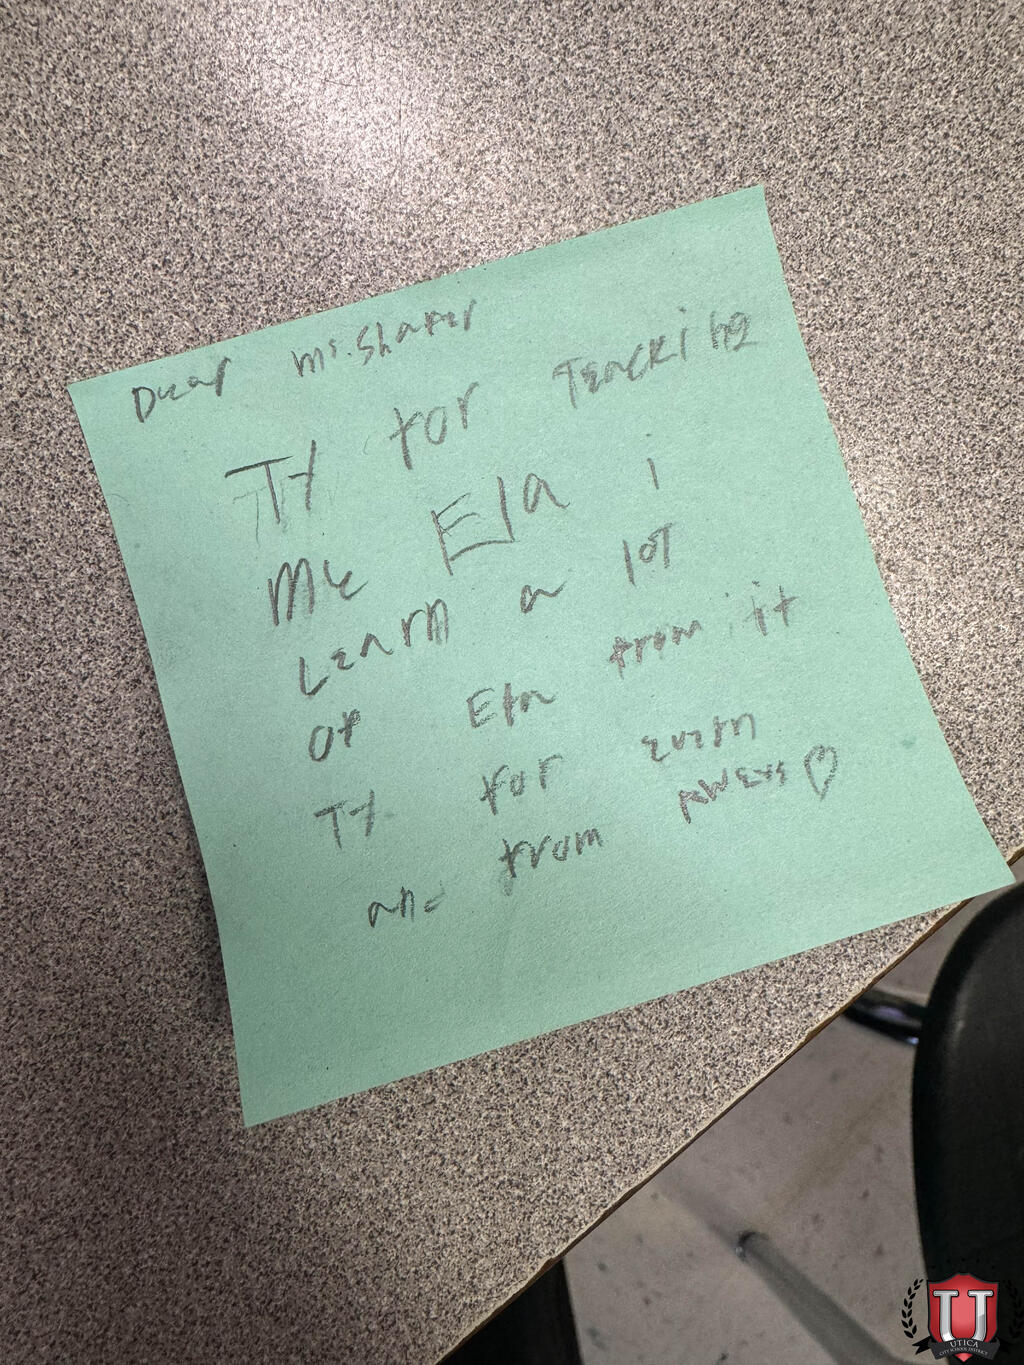 Dear mr. Shafer
TY for Teacking
Me Ela i
Learn a lot
Of Ela from it
TY for
and from
UTICA
CITY SCHOOL DISTRICT